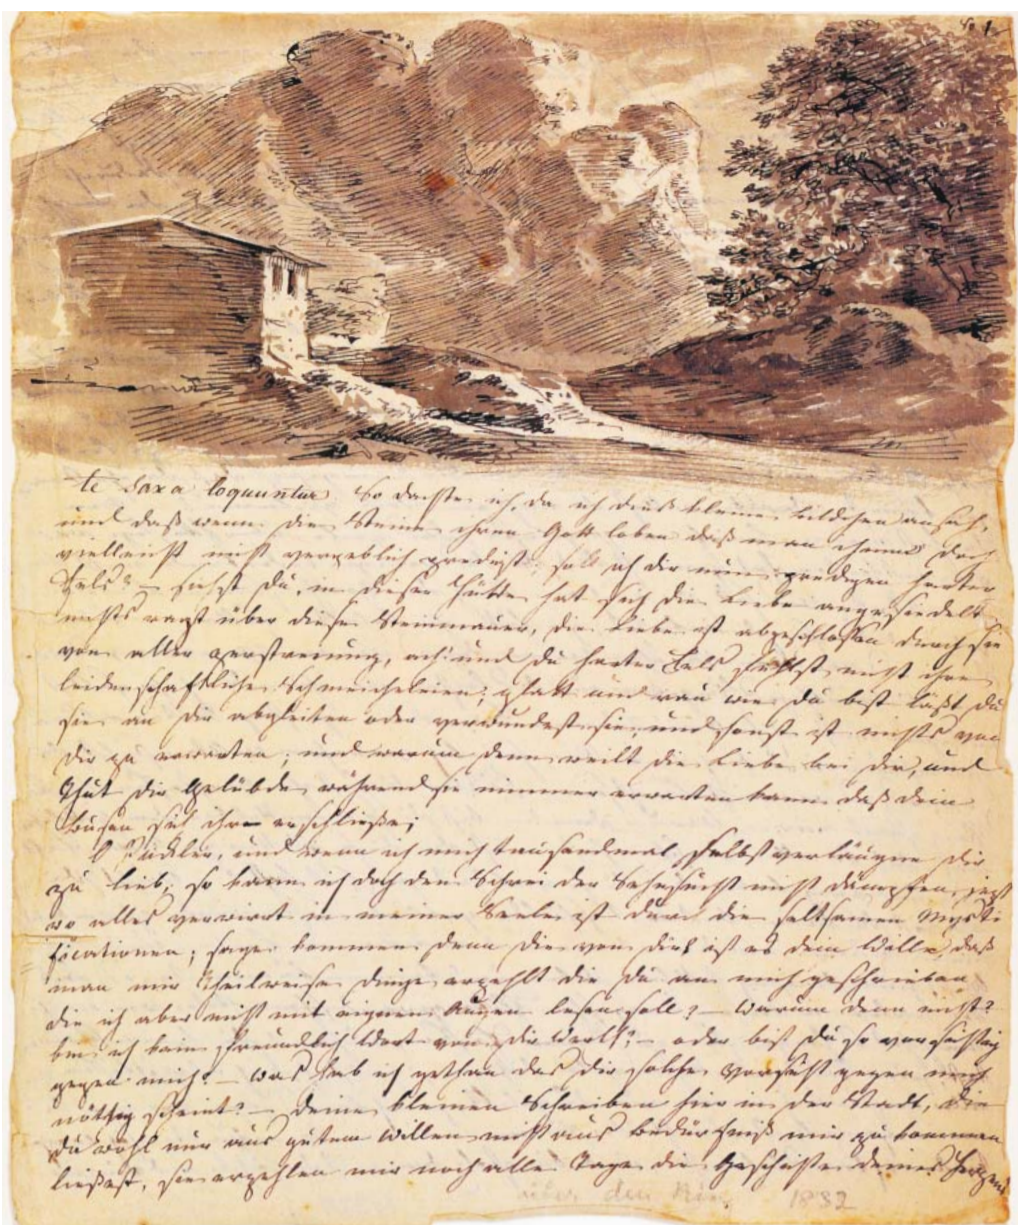 te saxa loquuntur So dachte ich, da ich dies kleine bildchen ansah,
und daß wenn die Steine ihren Gott loben daß man ihnen doch
vielleicht nicht vergeblich predigt. soll ich dir nun predigen harter
Fels? — siehst Du, in dieser Hütte hat sich die Liebe angesiedelt
nichts ragt über diese Steinmauer, die Liebe ist abgeschloßen durch sie
von aller zerstreuung, ach! und du harter Fels fühlst nicht ihre
leidenschaftliche Schmeicheleien; glatt und rau wie du bist läßt du
sie an dir abgleiten oder verwundest sie, und sonst ist nichts von
dir zu erwarten; und warum denn weilt die Liebe bei dir, und
thut dir Gelübde während sie nimmer erwarten kann daß dein
Busen sich ihr erschließe;
O Pückler, und wenn ich mich tausendmal selbst verläugne dir
zu lieb, so kann ich doch den Schrei der Sehnsucht nicht dämpfen, jezt
wo alles verwirrt in meiner Seele ist durch die seltsamen Mysti
ficationen; sage kommen denn die von dir? ist es dein Wille, daß
man mir theilweise dinge erzehlt die du an mich geschrieben
die ich aber nicht mit eignen Augen lesen soll? — Warum denn nicht?
bin ich kein freundlich Wort von dir werth? — oder bist du so vorsichtig
gegen mich? — was hab ich gethan das dir solche Vorsicht gegen mich
nöthig scheint? — deine kleinen Schreiben hier in der Stadt, die
du wohl nur aus gutem Willen nicht aus Bedürfniß mir zu kommen
ließest, sie erzehlen mir noch alle Tage die Geschichte deines Herzens
über den 1832